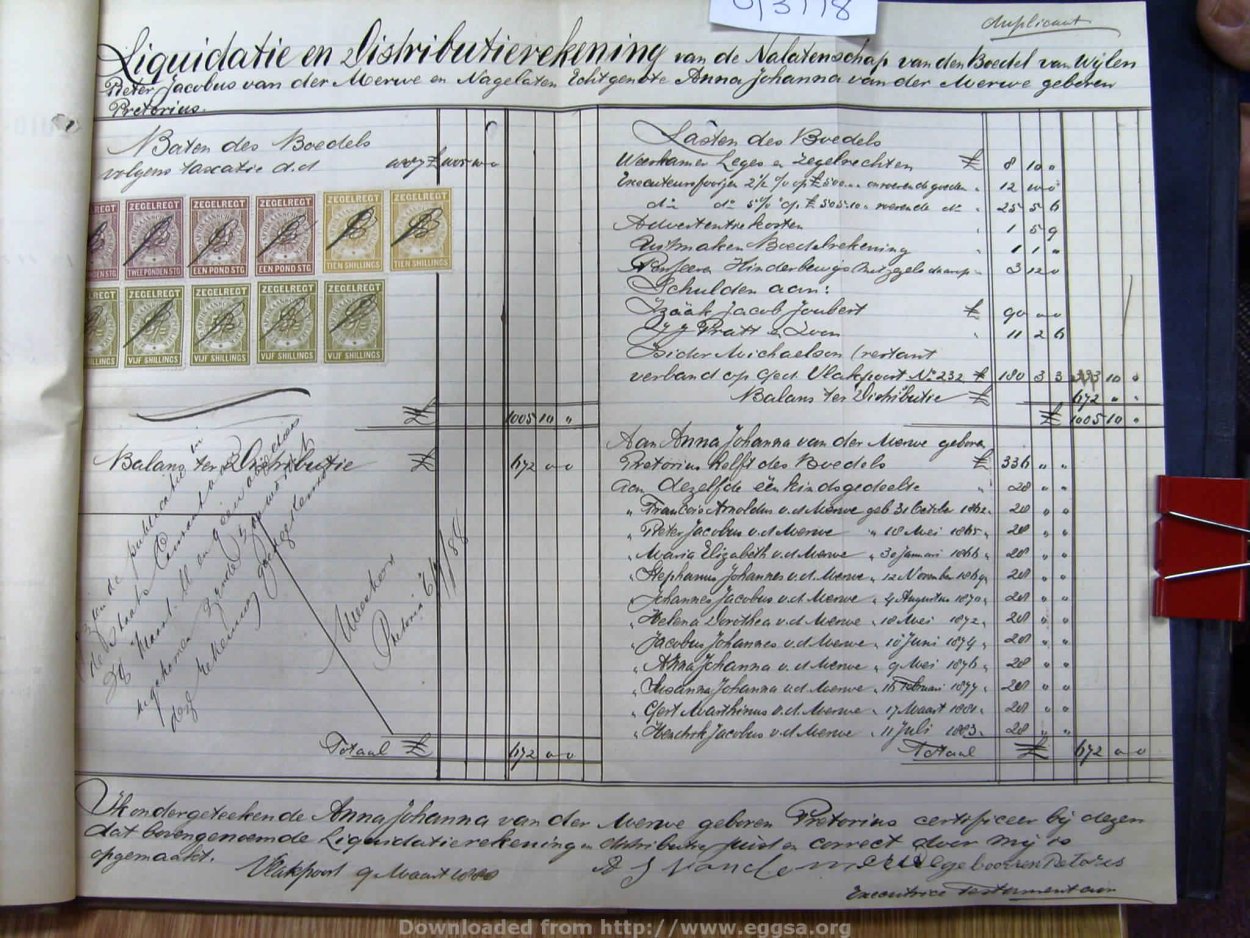 Duplicaat
Liquidatie en Distributierekening van de Nalatenschap van den Boedel van Wijlen
Pieter Jacobus van der Merwe en Nagelaten Echtgenote Anna Johanna van der Merwe geboren
Pretorius.
Baten des Boedels
volgens taxatie d.d £ 1005 10 0
ZEGELREGT ZEGELREGT ZEGELREGT ZEGELREGT ZEGELREGT
TWEE PONDEN STG EEN POND STG EEN POND STG TIEN SHILLINGS TIEN SHILLINGS
ZEGELREGT ZEGELREGT ZEGELREGT ZEGELREGT
VIJF SHILLINGS VIJF SHILLINGS VIJF SHILLINGS VIJF SHILLINGS
£ 1005 10 "
Balans ter Distributie £ 672 0 0
de publicatie in
de Staats Courant
Maart
rekening
Weeskamer
Pretoria
Totaal £ 672 0 0
Lasten des Boedels
Weeskamer Leges en Zegelrechten £ 8 10 0
2½ % op £ 500 onroerende goederen " 12 10 0
do do 5 % op £ 505.10 roerende do " 25 5 6
Advertentiekosten " 1 5 9
Uitmaken Boedelrekening " 1 1 "
Kinderbewijs 3 12 0
Schulden aan:
Izäak Jacob Joubert £ 90 0 0
Pratt 11 2 6
Isidor Michaelson (restant
verband op Ged. Vlakpoort No 232 £ 180 3 3 333 10 0
Balans ter Distributie £ 672 0 0
£ 1005 10 0
Aan Anna Johanna van der Merwe geboren
Pretorius helft des Boedels £ 336 " "
aan dezelfde één kindsgedeelte " 28 " "
" Francois Arnoldus v.d. Merwe geb 31 October 1862 " 28 " "
" Pieter Jacobus v.d. Merwe " 18 Mei 1865 " 28 " "
" Maria Elizabeth v.d. Merwe " 30 Januari 1866 " 28 " "
" Stephanus Johannes v.d. Merwe " 12 November 1869 " 28 " "
" Johannes Jacobus v.d. Merwe " 4 Augustus 1870 " 28 " "
" Helena Dorothea v.d. Merwe " 18 Mei 1872 " 28 " "
" Jacobus Johannes v.d. Merwe " 10 Juni 1874 " 28 " "
" Anna Johanna v.d. Merwe " 9 Mei 1876 " 28 " "
" Susanna Johanna v.d. Merwe " 16 Februari 1877 " 28 " "
" Gert Marthinus v.d. Merwe " 17 Maart 1881 " 28 " "
" Hendrik Jacobus v.d. Merwe " 11 Juli 1883 " 28 " "
Totaal £ 672 0 0
Ik ondergeteekende Anna Johanna van der Merwe geboren Pretorius certificeer bij dezen
dat bovengenoemde Liquidatierekening en distributie juist en correct door mij is
opgemaakt.
Vlakpoort 9 Maart 1888
A J van de merwe gebooren Pretories
Executrice Testamentair
Downloaded from http://www.eggsa.org